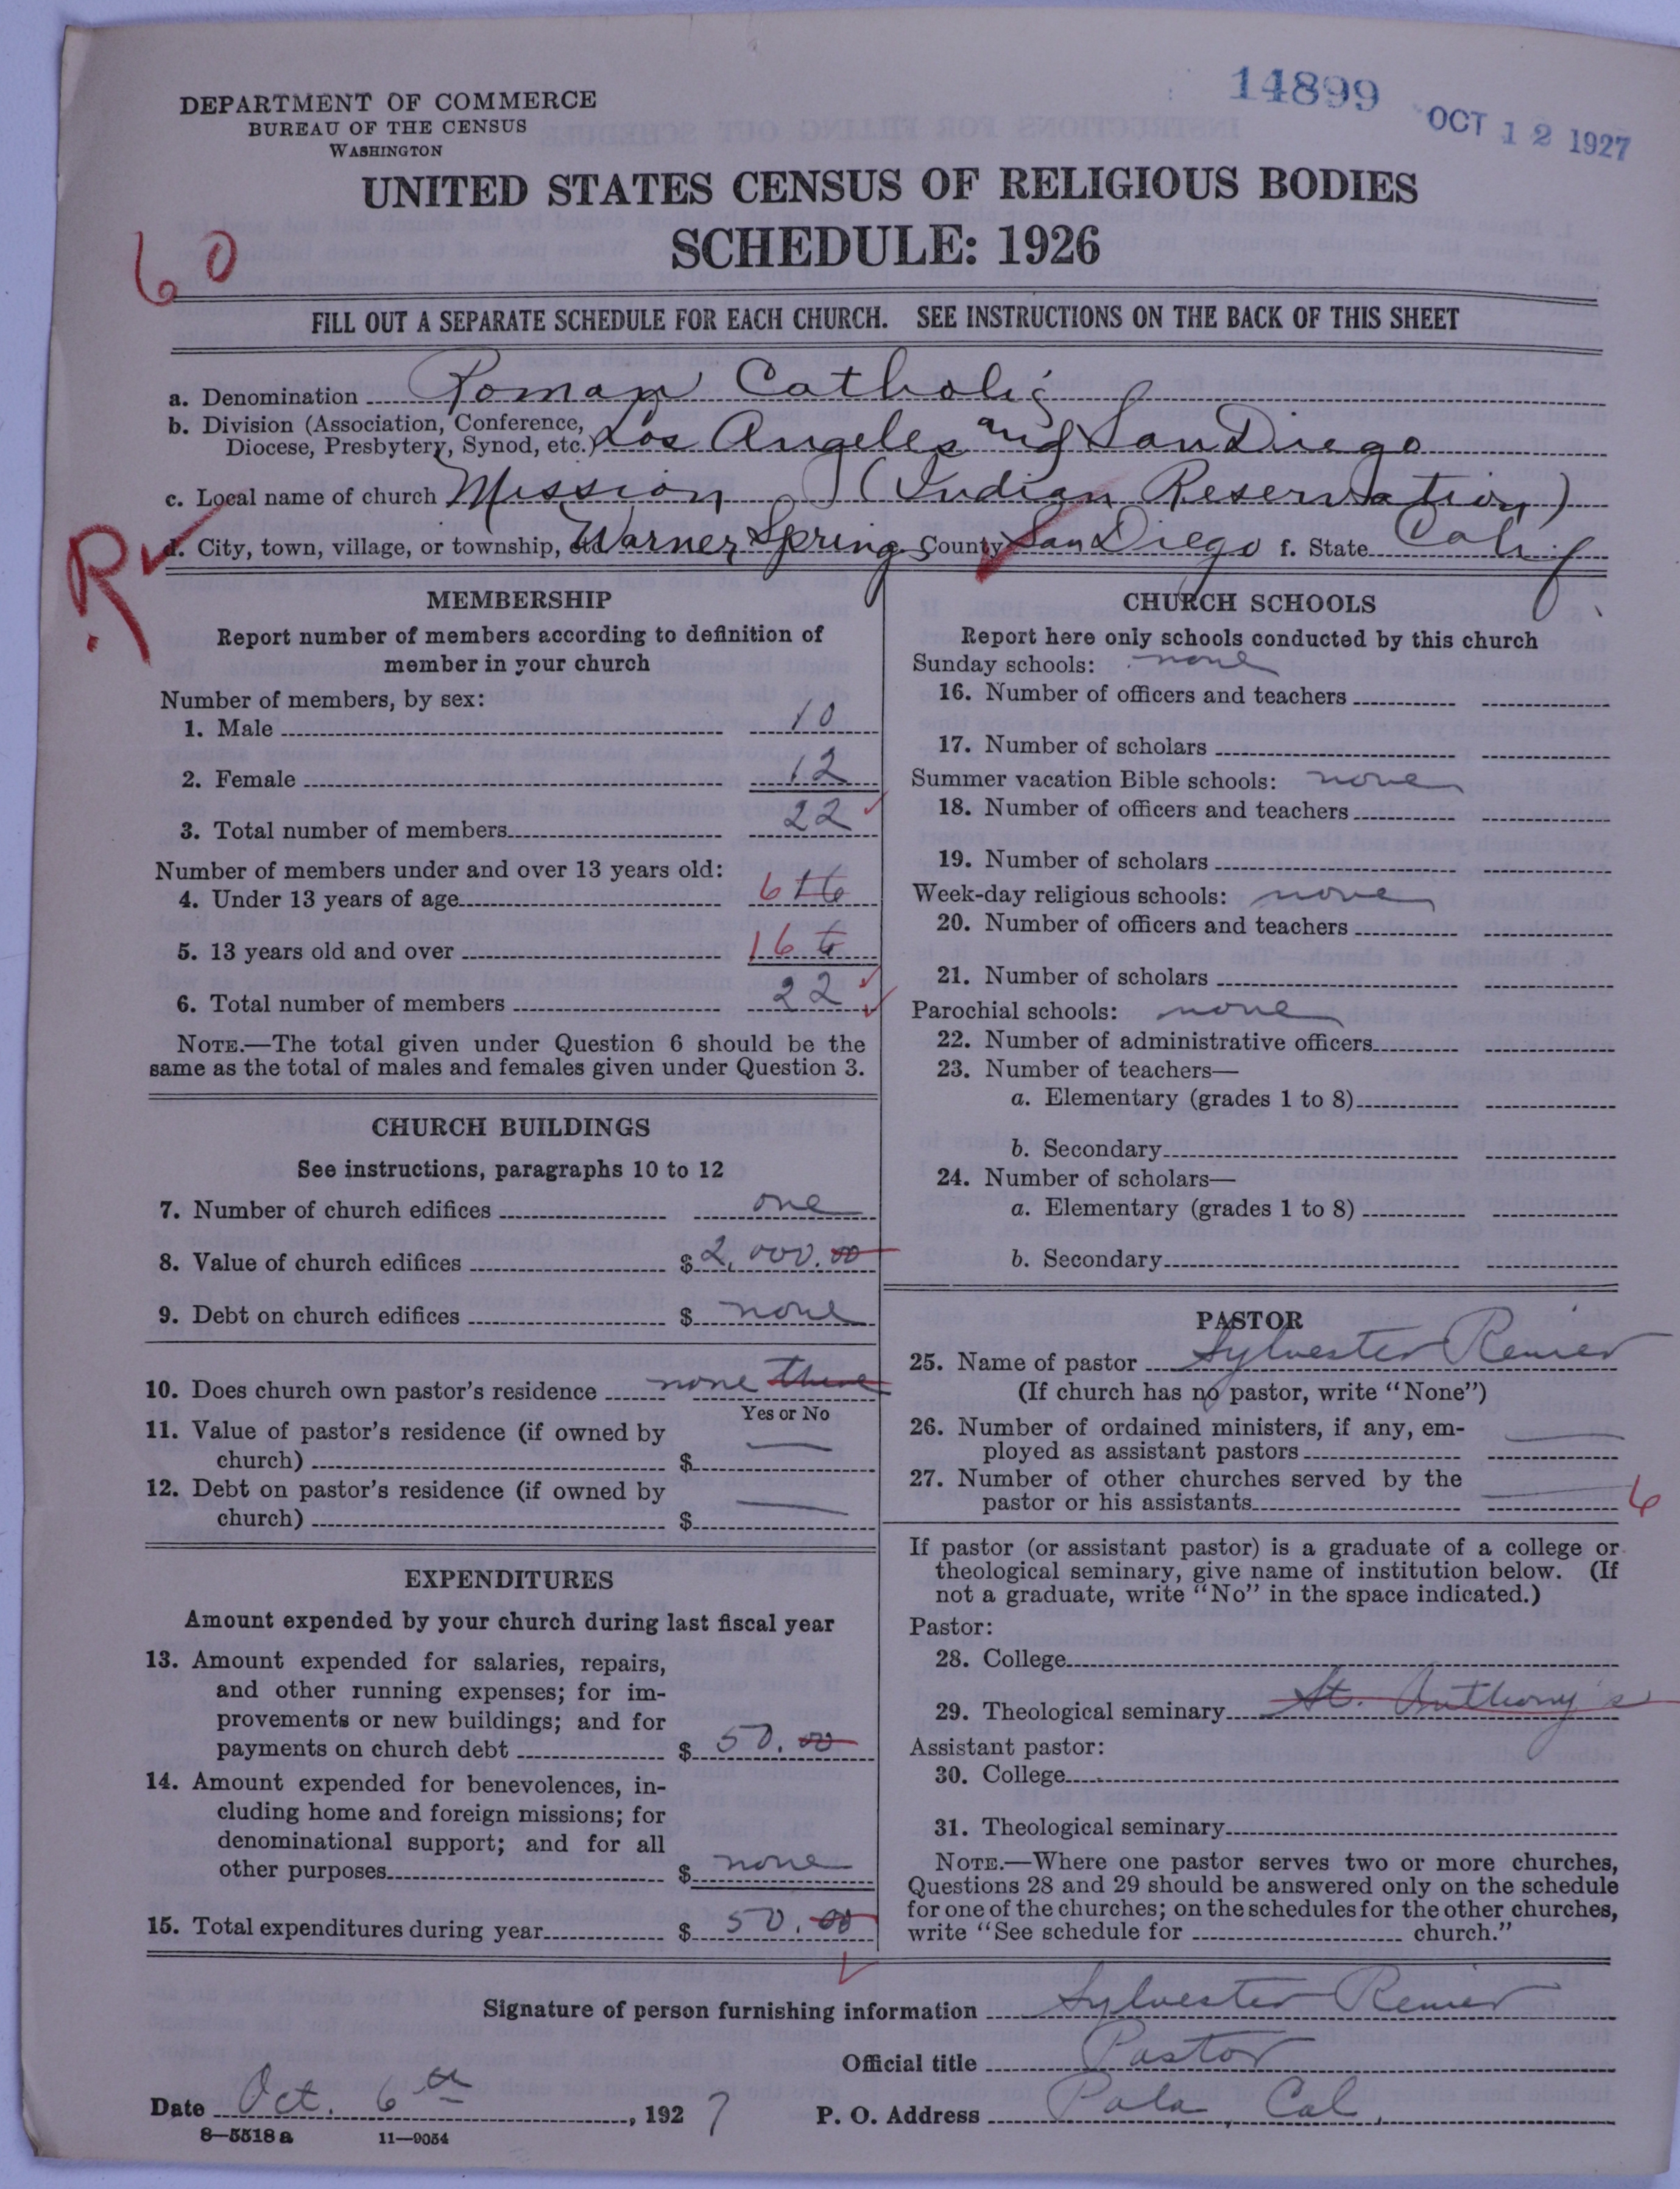 14899
OCT 12 1927
DEPARTMENT OF COMMERCE
BUREAU OF THE CENSUS
WASHINGTON
UNITED STATES CENSUS OF RELIGIOUS BODIES
SCHEDULE: 1926
60
FILL OUT A SEPARATE SCHEDULE FOR EACH CHURCH. SEE INSTRUCTIONS ON THE BACK OF THIS SHEET
a. Denomination Roman Catholic
b. Division (Association, Conference,
Diocese, Presbytery, Synod, etc.) Los Angeles and San Diego
c. Local name of church Mission (Indian Reservation)
R
d. City, town, village, or township, etc. Warner Springs County San Diego f. State Calif.
MEMBERSHIP
Report number of members according to definition of
member in your church
Number of members, by sex:
1. Male 10
2. Female 12
3. Total number of members 22
Number of members under and over 13 years old:
4. Under 13 years of age 6 16
5. 13 years old and over 16 6
6. Total number of members 22
NOTE.—The total given under Question 6 should be the
same as the total of males and females given under Question 3.
CHURCH BUILDINGS
See instructions, paragraphs 10 to 12
7. Number of church edifices one
8. Value of church edifices $ 2,000.00
9. Debt on church edifices $ none
10. Does church own pastor's residence none there
Yes or No
11. Value of pastor's residence (if owned by
church) $ —
12. Debt on pastor's residence (if owned by
church) $ —
EXPENDITURES
Amount expended by your church during last fiscal year
13. Amount expended for salaries, repairs,
and other running expenses; for im-
provements or new buildings; and for
payments on church debt $ 50.00
14. Amount expended for benevolences, in-
cluding home and foreign missions; for
denominational support; and for all
other purposes $ none
15. Total expenditures during year $ 50.00
CHURCH SCHOOLS
Report here only schools conducted by this church
Sunday schools: none
16. Number of officers and teachers
17. Number of scholars
Summer vacation Bible schools: none
18. Number of officers and teachers
19. Number of scholars
Week-day religious schools: none
20. Number of officers and teachers
21. Number of scholars
Parochial schools: none
22. Number of administrative officers
23. Number of teachers—
a. Elementary (grades 1 to 8)
b. Secondary
24. Number of scholars—
a. Elementary (grades 1 to 8)
b. Secondary
PASTOR
25. Name of pastor Sylvester Renier
(If church has no pastor, write "None")
26. Number of ordained ministers, if any, em-
ployed as assistant pastors —
27. Number of other churches served by the
pastor or his assistants — 6
If pastor (or assistant pastor) is a graduate of a college or
theological seminary, give name of institution below. (If
not a graduate, write "No" in the space indicated.)
Pastor:
28. College
29. Theological seminary St. Anthony's
Assistant pastor:
30. College
31. Theological seminary
NOTE.—Where one pastor serves two or more churches,
Questions 28 and 29 should be answered only on the schedule
for one of the churches; on the schedules for the other churches,
write "See schedule for church."
Signature of person furnishing information Sylvester Renier
Official title Pastor
Date Oct. 6th, 1927 P. O. Address Pala, Cal.
8—5518 a 11—9054